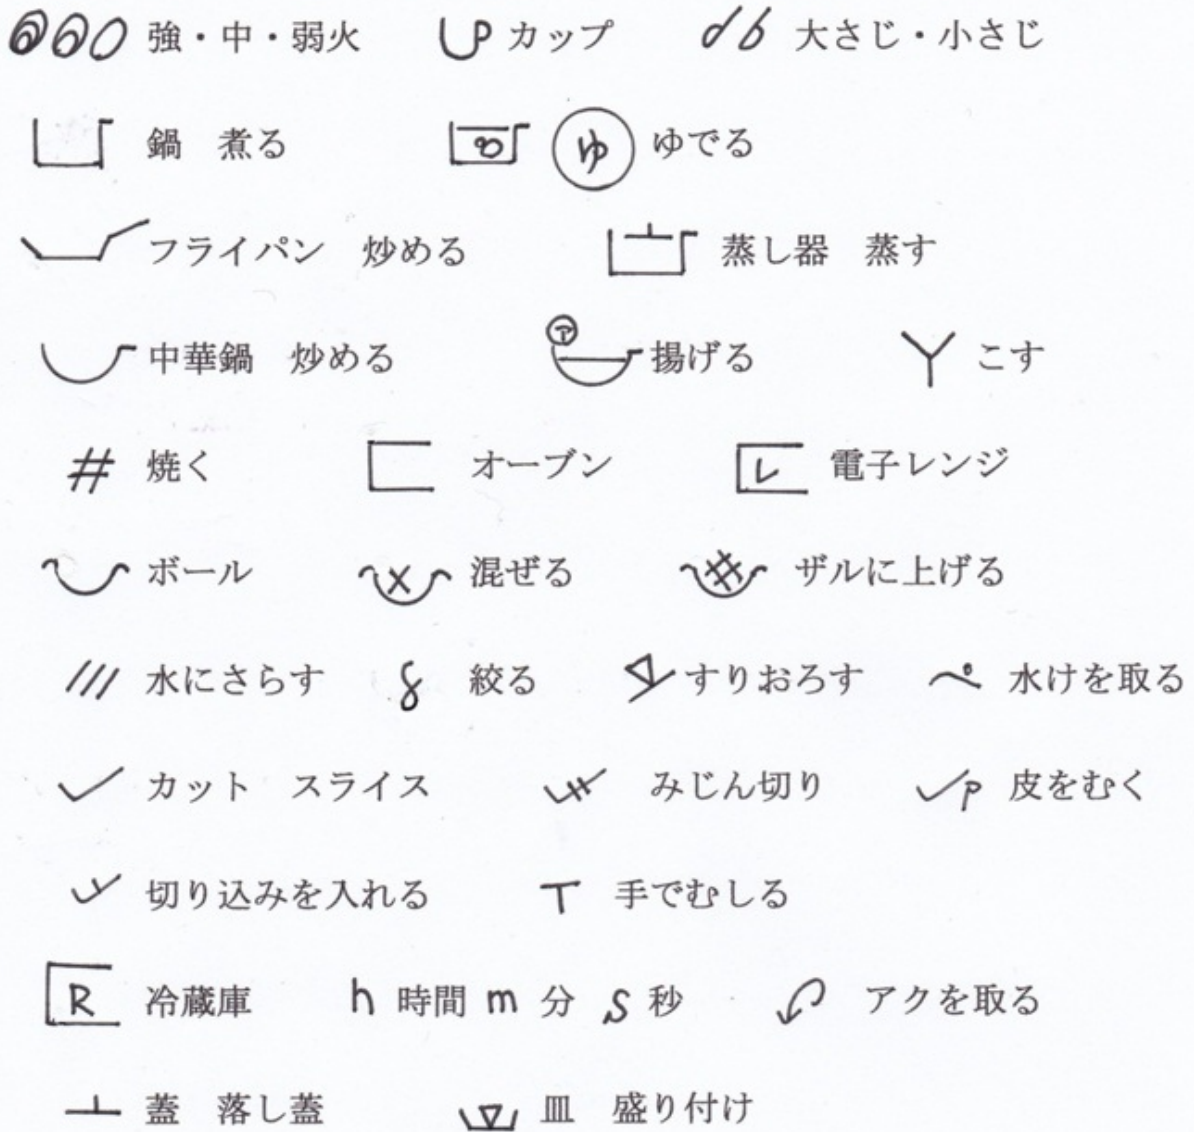 強・中・弱火 カップ 大さじ・小さじ
鍋 煮る ゆ ゆでる
フライパン 炒める 蒸し器 蒸す
中華鍋 炒める ア 揚げる こす
焼く オーブン レ 電子レンジ
ボール 混ぜる ザルに上げる
水にさらす 絞る すりおろす 水けを取る
カット スライス みじん切り P 皮をむく
切り込みを入れる T 手でむしる
R 冷蔵庫 h 時間 m 分 s 秒 アクを取る
蓋 落し蓋 皿 盛り付け